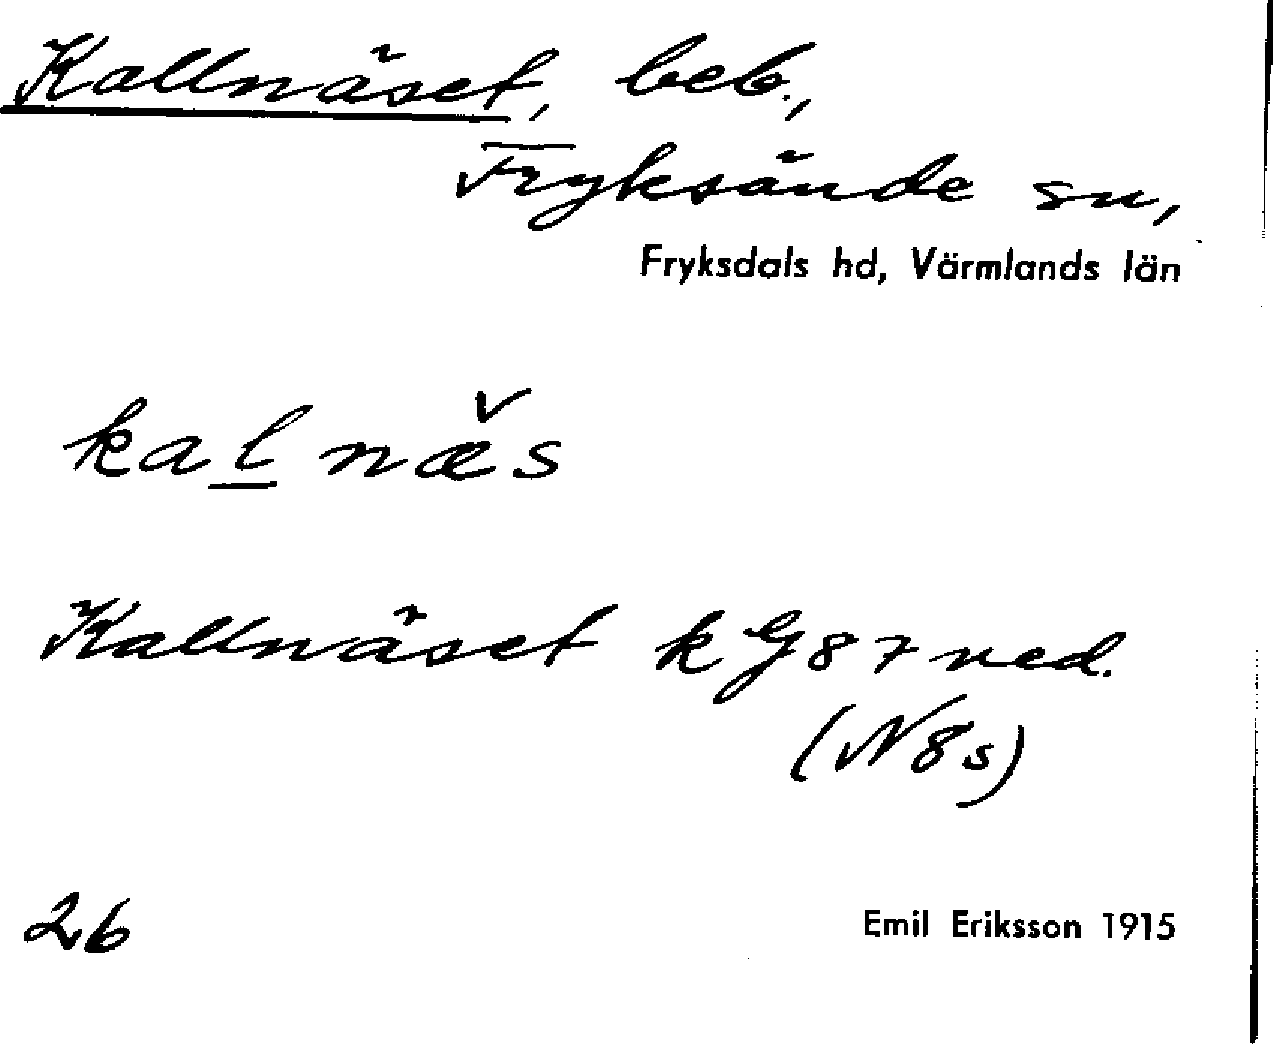 Kallnäset, beb.,
Fryksände sn,
Fryksdals hd, Värmlands län
kalnæ̌s
Kallnäset k G87 ned.
(N8s)
26 Emil Eriksson 1915